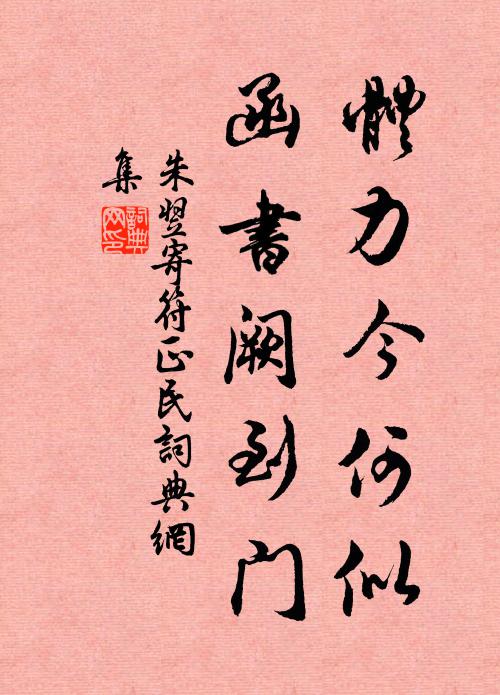 體力今何似
函書闕到門
朱翌寄符正民詞典網
集
詞典網印